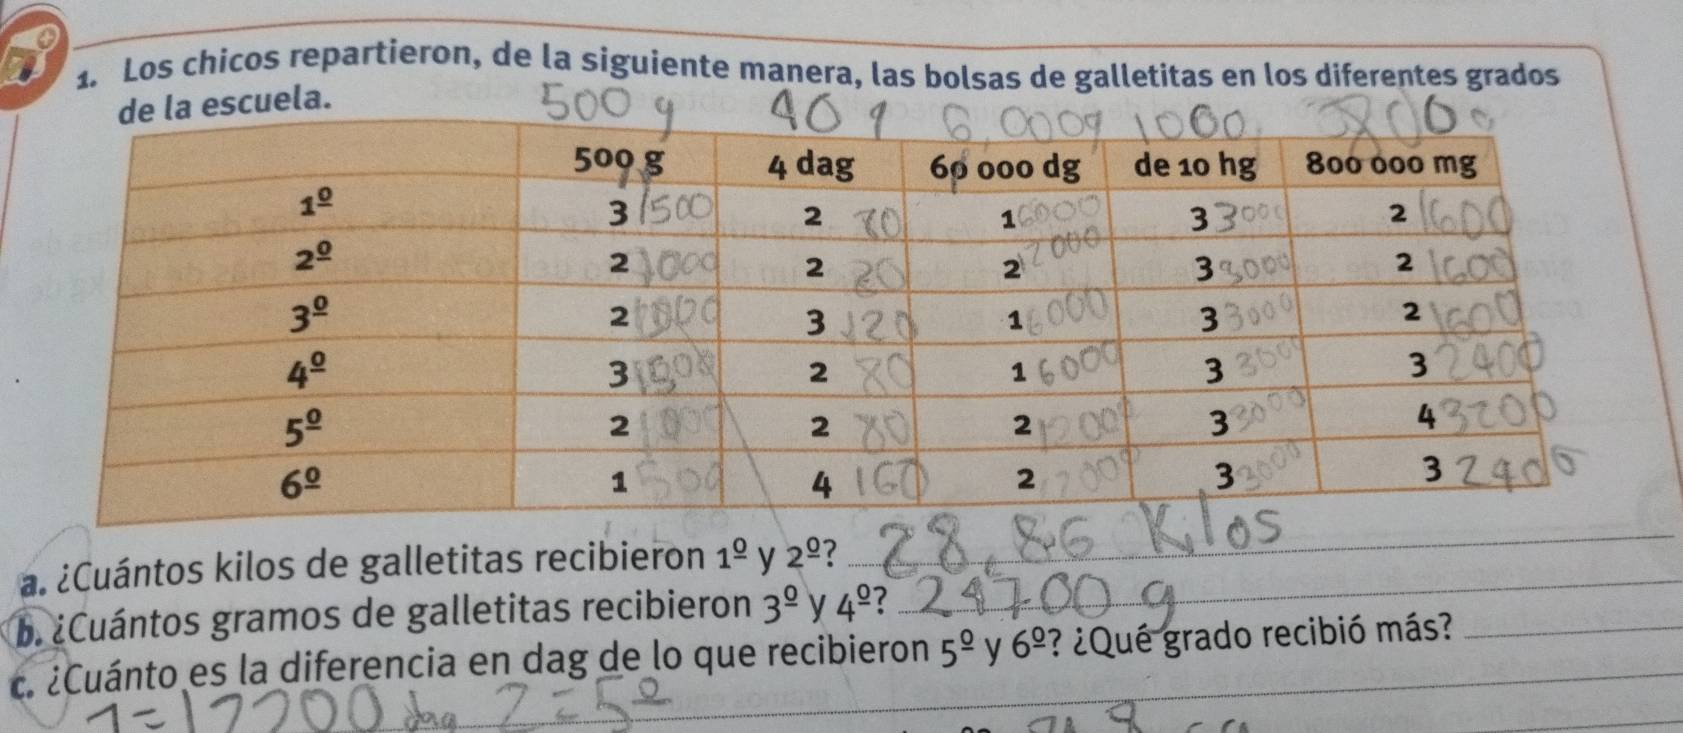 1. Los chicos repartieron, de la siguiente manera, las bolsas de galletitas en los diferentes grados
de la escuela.
500 g 40 g 6.000g 1000
500 g 4 dag 60 000 dg de 10 hg 800 000 mg
1º 3 1500 2 80 1 6000 3 3000 2 1600
2º 2 1000 2 80 2 12000 3 3000 2 1600
3º 2 1000 3 120 1 6000 3 3000 2 1600
4º 3 1500 2 80 1 6000 3 3000 3 2400
5º 2 1000 2 80 2 12000 3 3000 4 3200
6º 1 500 4 160 2 3 3000 3 2400
a. ¿Cuántos kilos de galletitas recibieron 1º y 2º? 28,86 Kilos
b. ¿Cuántos gramos de galletitas recibieron 3º y 4º? 24700 g
c. ¿Cuánto es la diferencia en dag de lo que recibieron 5º y 6º? ¿Qué grado recibió más?
1=17200 dag 2=5º